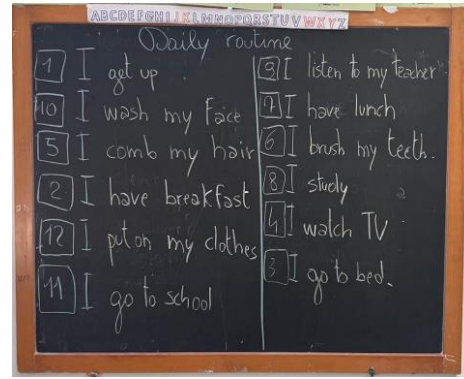 ABCDEFGHIJKLMNOPQRSTUVWXYZ
Daily routine
1 I get up
10 I wash my face
5 I comb my hair
2 I have breakfast
12 I put on my clothes
11 I go to school
9 I listen to my teacher
7 I have lunch
6 I brush my teeth.
8 I study
4 I watch TV
3 I go to bed.